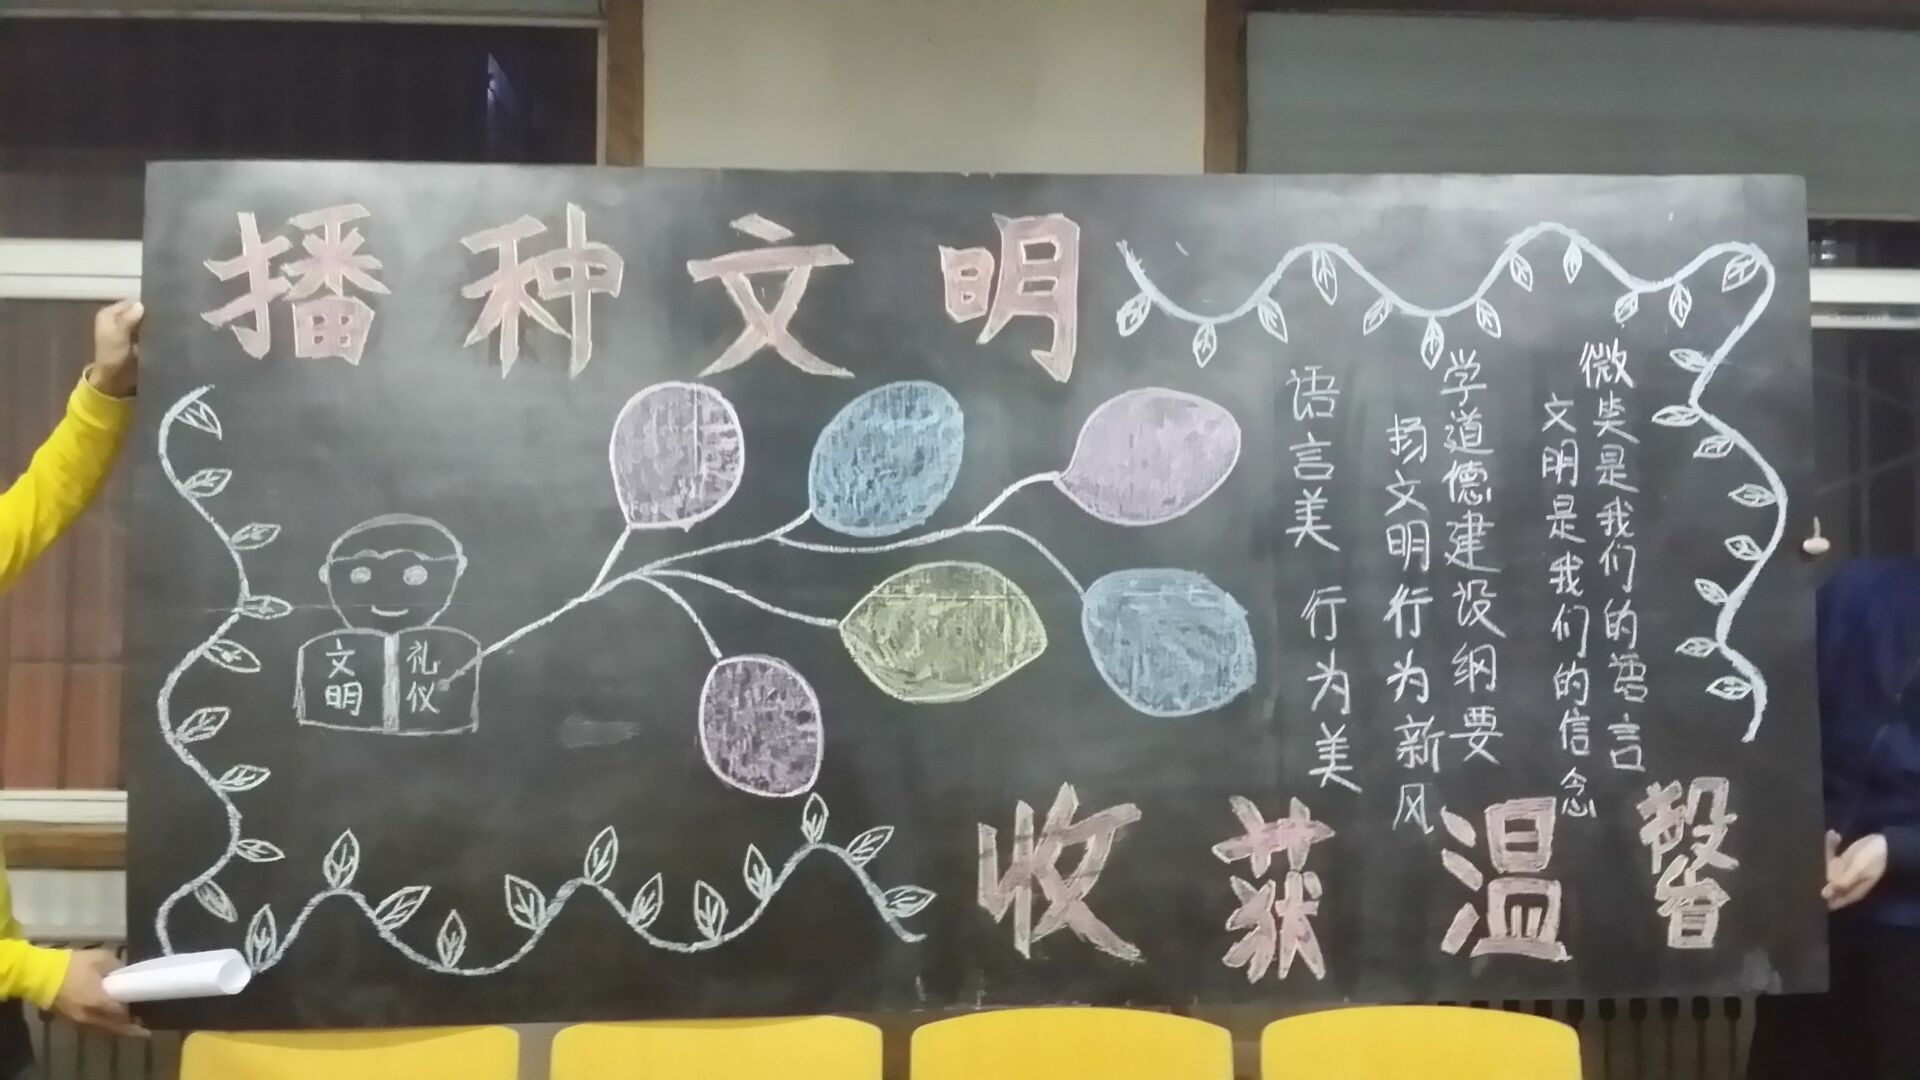 播种文明
文明
礼仪
微笑是我们的语言
文明是我们的信念
学道德建设纲要
扬文明行为新风
语言美 行为美
收获温馨